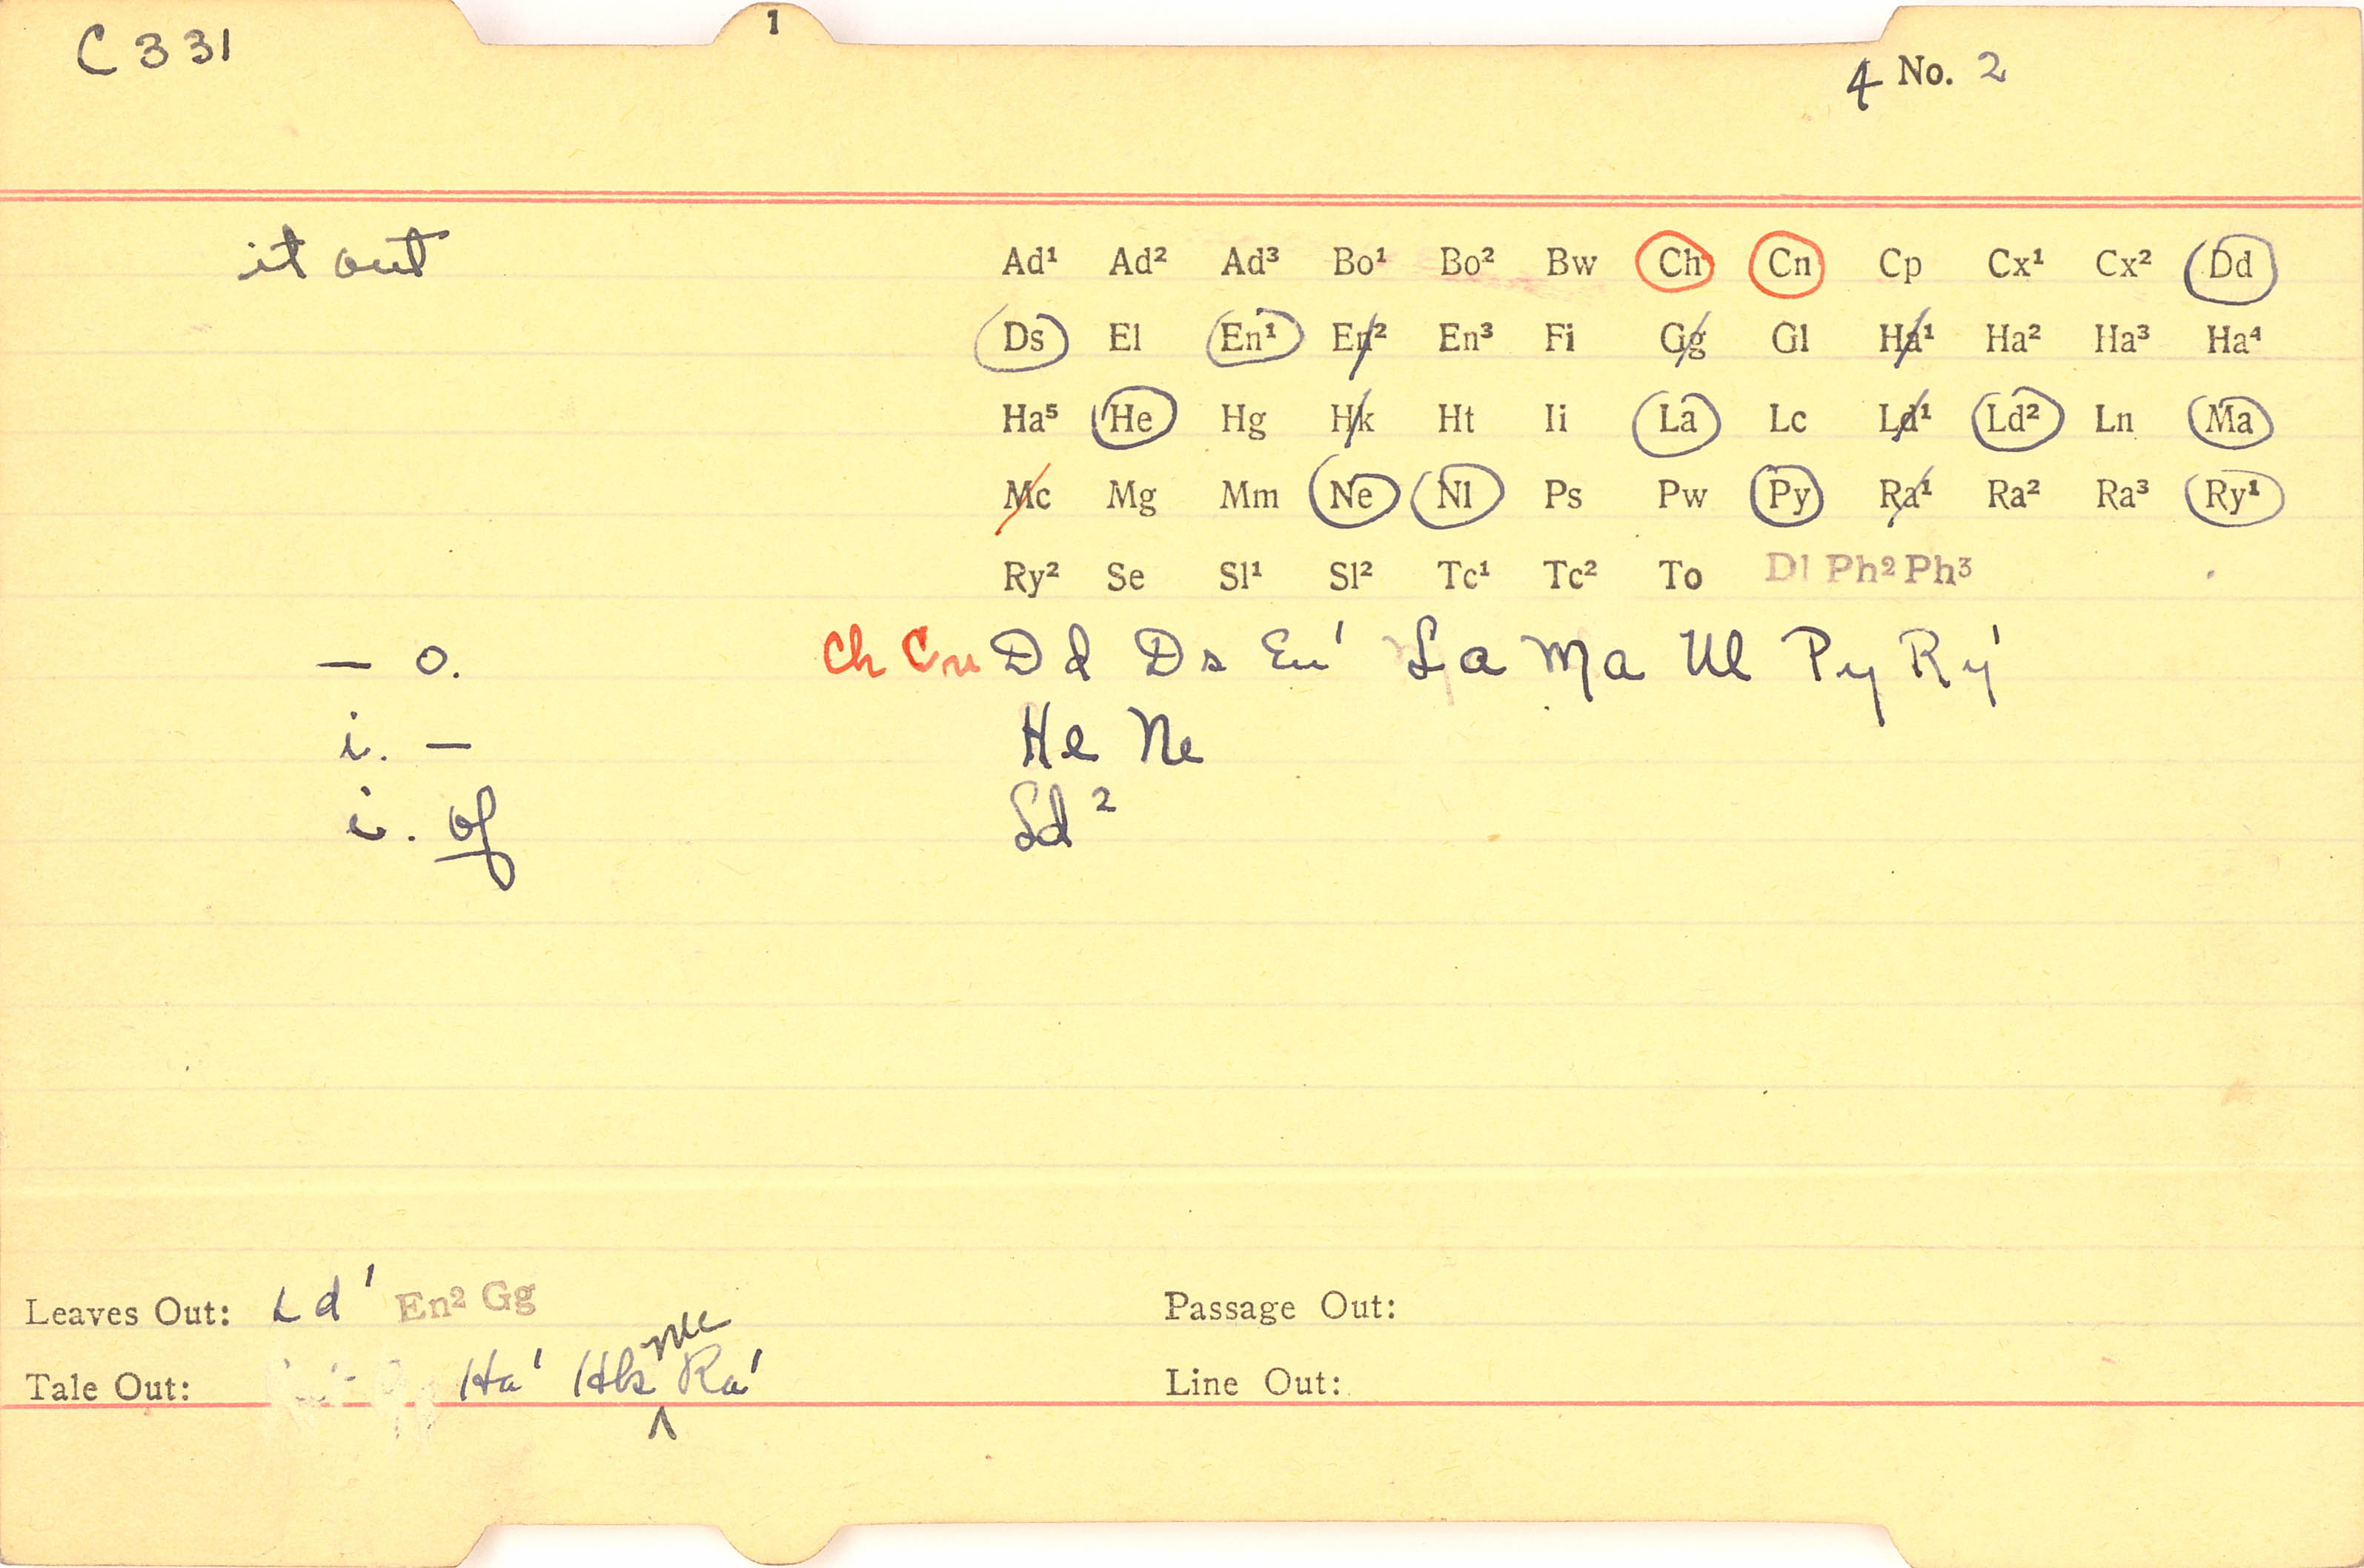 1
C 331
4 No. 2
it out
Ad¹ Ad² Ad³ Bo¹ Bo² Bw Ch Cn Cp Cx¹ Cx² Dd
Ds El En¹ En² En³ Fi Gg Gl Ha¹ Ha² Ha³ Ha⁴
Ha⁵ He Hg Hk Ht Ii La Lc Ld¹ Ld² Ln Ma
Mc Mg Mm Ne Nl Ps Pw Py Ra¹ Ra² Ra³ Ry¹
Ry² Se Sl¹ Sl² Tc¹ Tc² To Dl Ph² Ph³
— o. Ch Cn Dd Ds En¹ La Ma Nl Py Ry¹
i. — He Ne
i. of Ld²
Leaves Out: Ld¹ En² Gg
Passage Out:
Tale Out: Ha¹ Hk Mc Ra¹
Line Out: